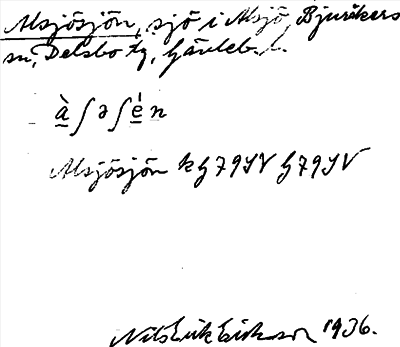 Alsjösjön, sjö i Alsjö, Bjuråkers
sn, Delsbo tg, Gävleb. l.
à ʃ ə ʃ é n
Alsjösjön k G79SV G79SV
Nils Erik Eriksson 1936.